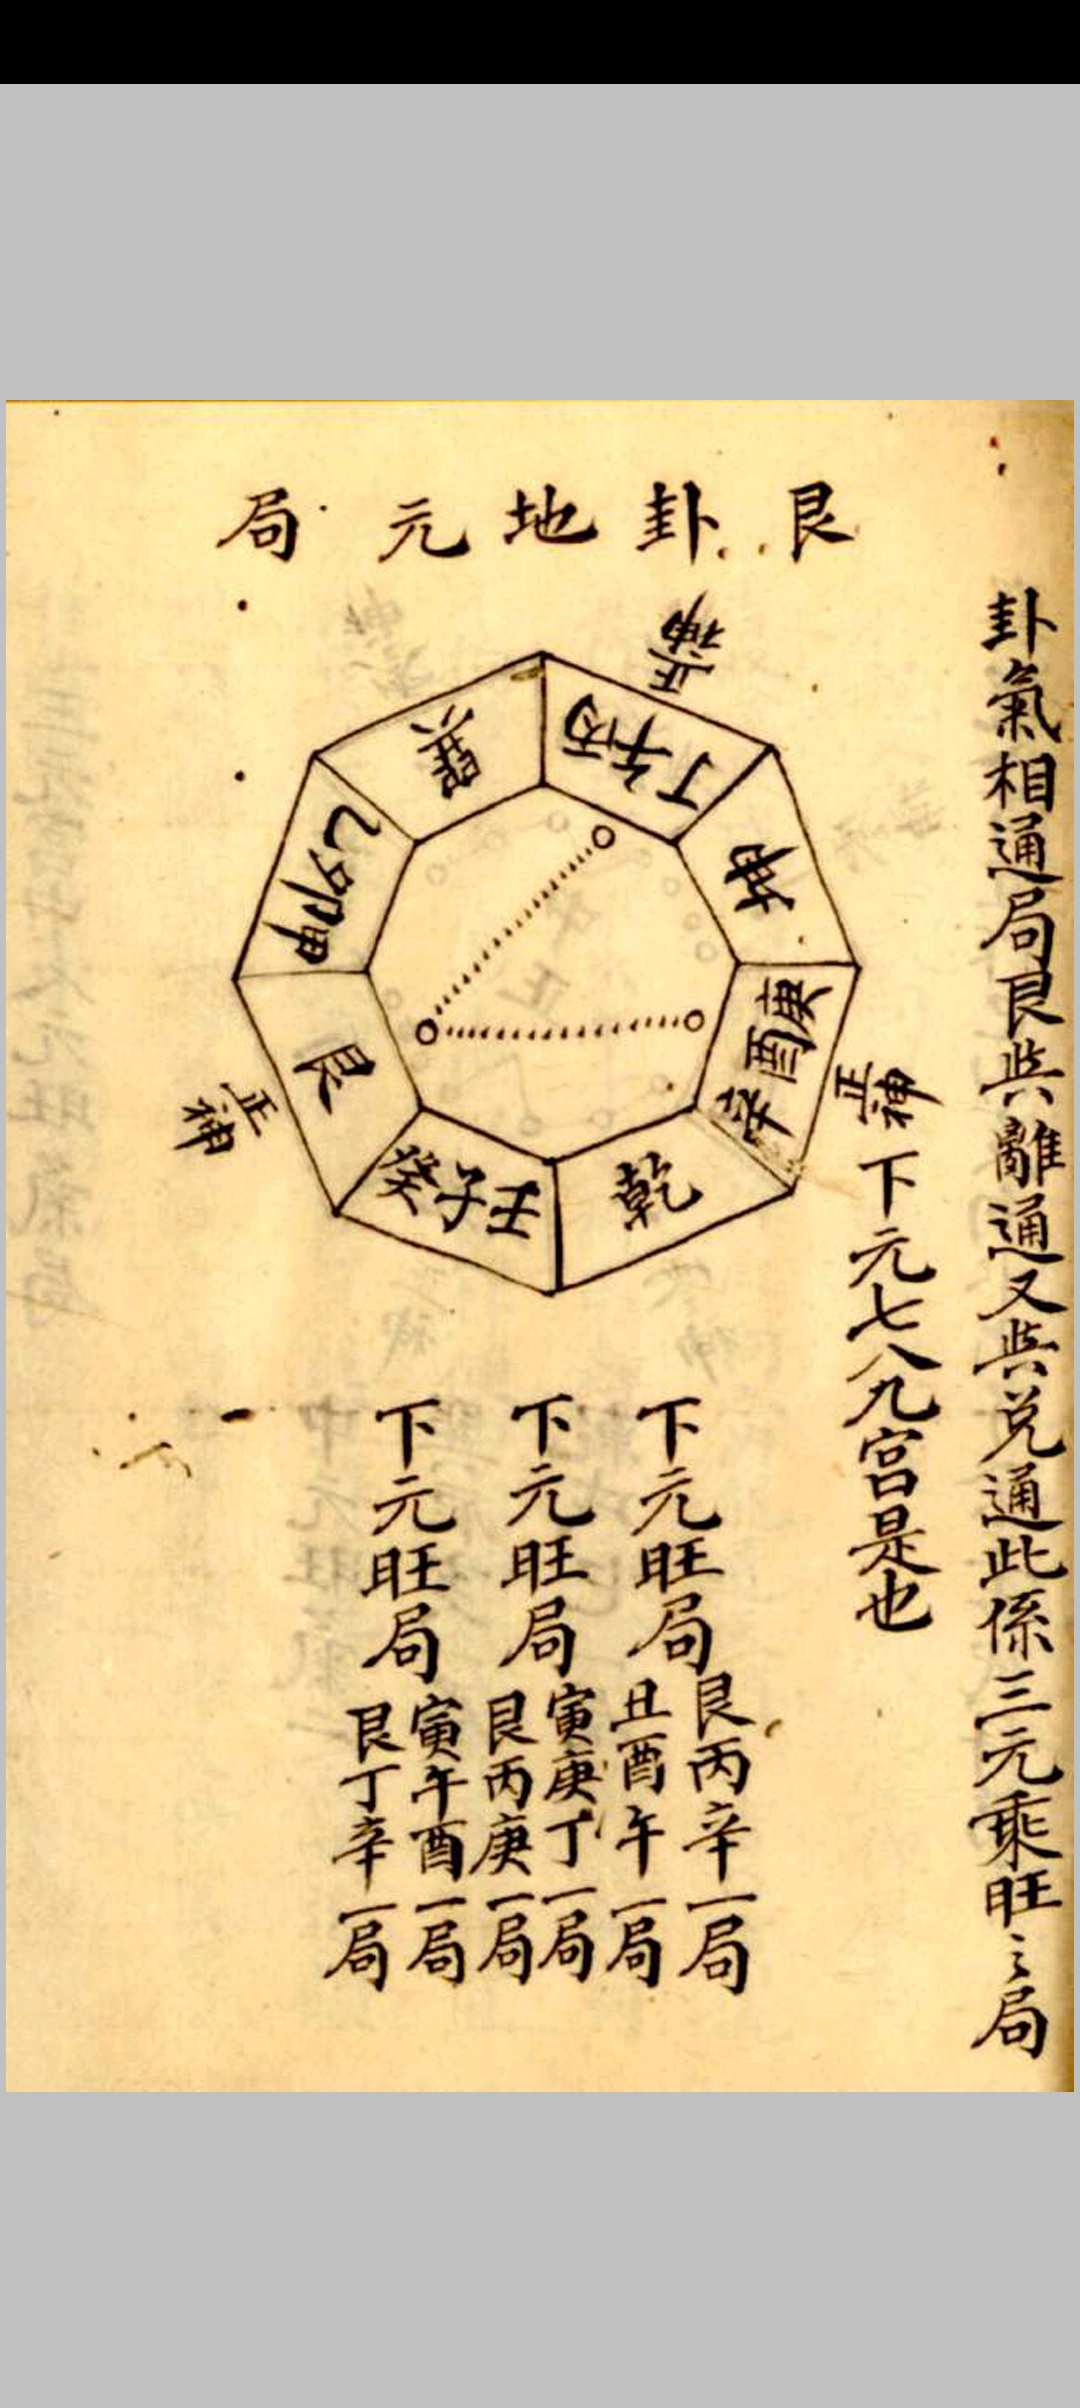 艮卦地元局
卦氣相通局艮與離通又與兑通此係三元乘旺之局
下元七八九宮是也
正神
丙午丁
坤
庚酉辛
正神
乾
壬子癸
艮
正神
甲卯乙
巽
下元旺局
艮丙辛一局
丑酉午一局
下元旺局
寅庚丁一局
艮丙庚一局
下元旺局
寅午酉一局
艮丁辛一局